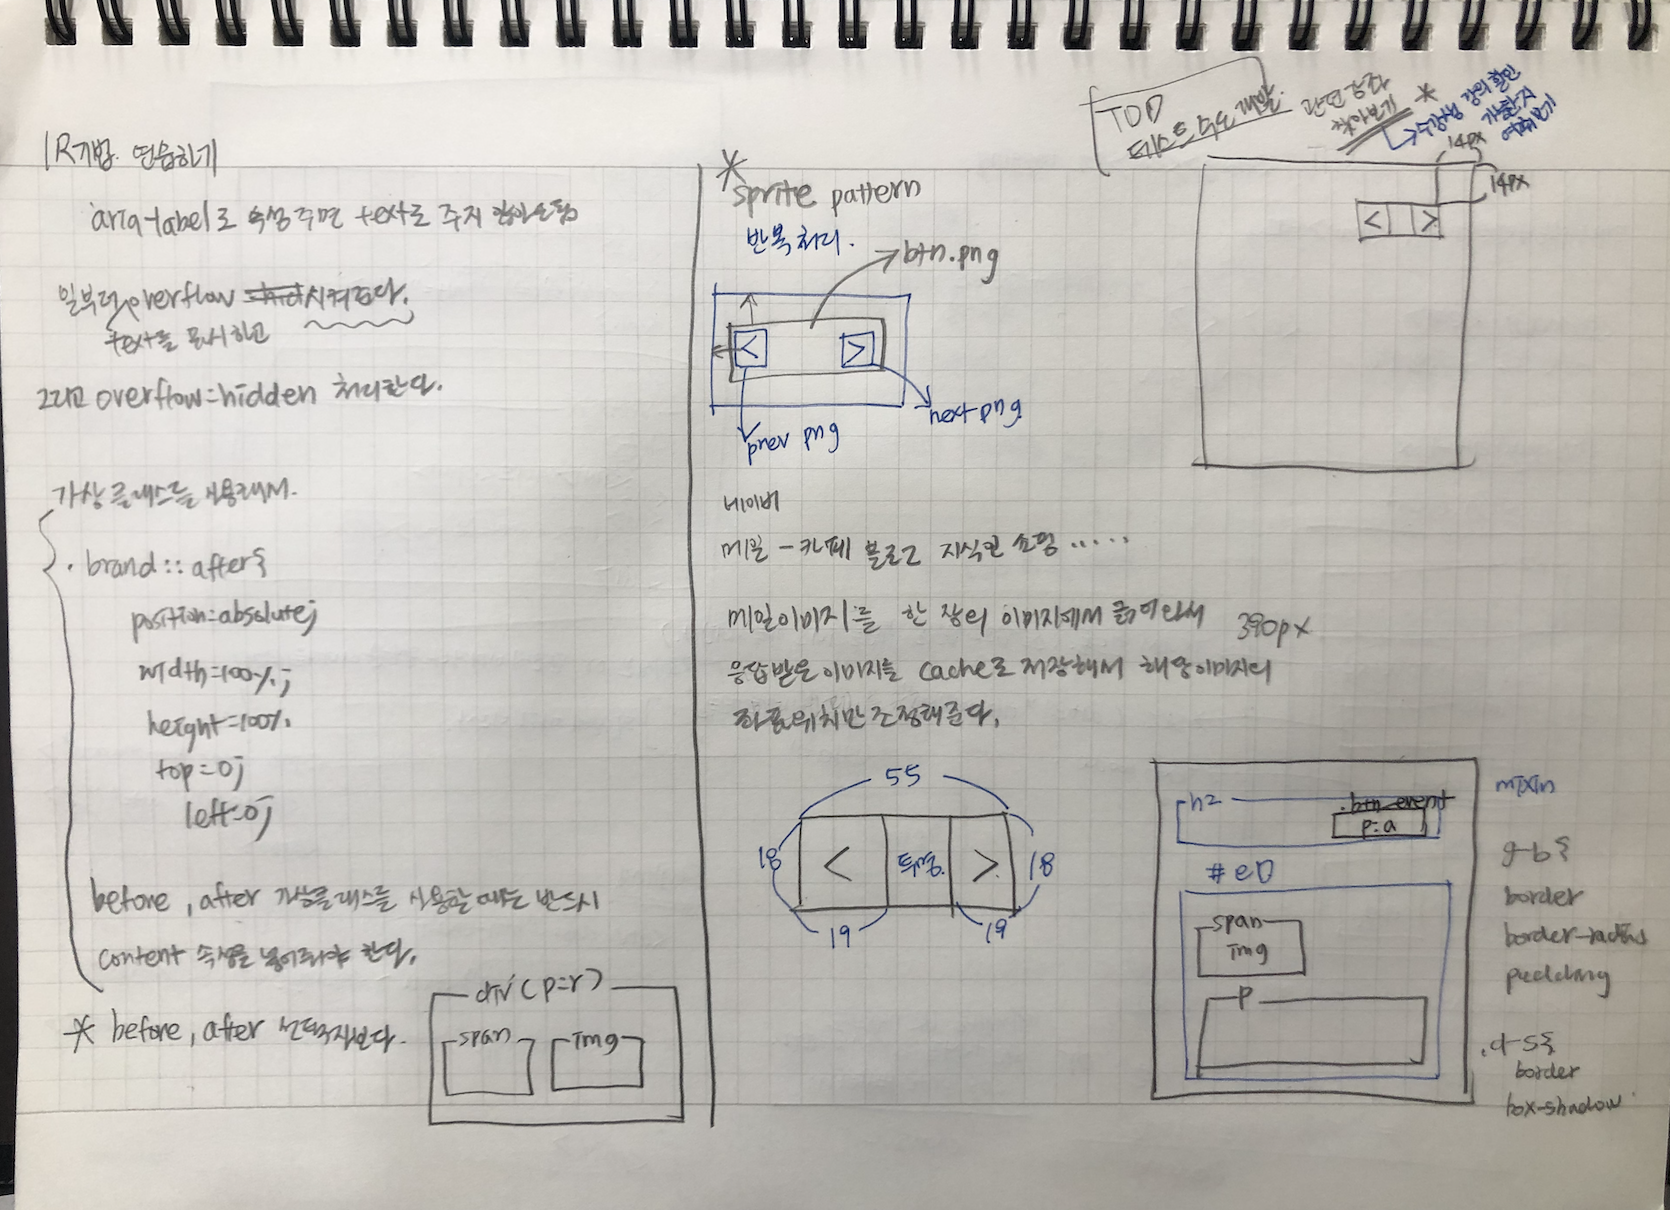 IR기법 연습하기
aria-label로 속성주면 text로 주지 않아도됨
일부러 overflow 시켜준다.
text를 표시하고
그리고 overflow=hidden 처리한다.
가상클래스를 사용해서.
.brand::after{
position=absolute;
width=100%;
height=100%
top=0;
left=0;
before, after 가상클래스를 사용할때는 반드시
content 속성을 넣어줘야 한다.
* before, after 선택자보다.
div(p=r)
span
img
*
sprite pattern
반복처리.
btn.png
<
>
prev png
next png
네이버
메일 - 카페 블로그 지식인 쇼핑 ......
메일이미지를 한 장의 이미지에서 긁어와서
390px
응답받은 이미지를 cache로 저장해서 해당이미지의
좌표위치만 조정해준다.
55
18
<
투명.
>
18
19
19
TDD
테스트 주도 개발.
관련강좌
찾아보기 *
수강생 강의 확인
가능한지
여쭤보기
14px
14px
<
>
h2
.btn-event
p:a
#eD
span
img
p
mixin
g-b{
border
border-radius
padding
.d-s{
border
box-shadow